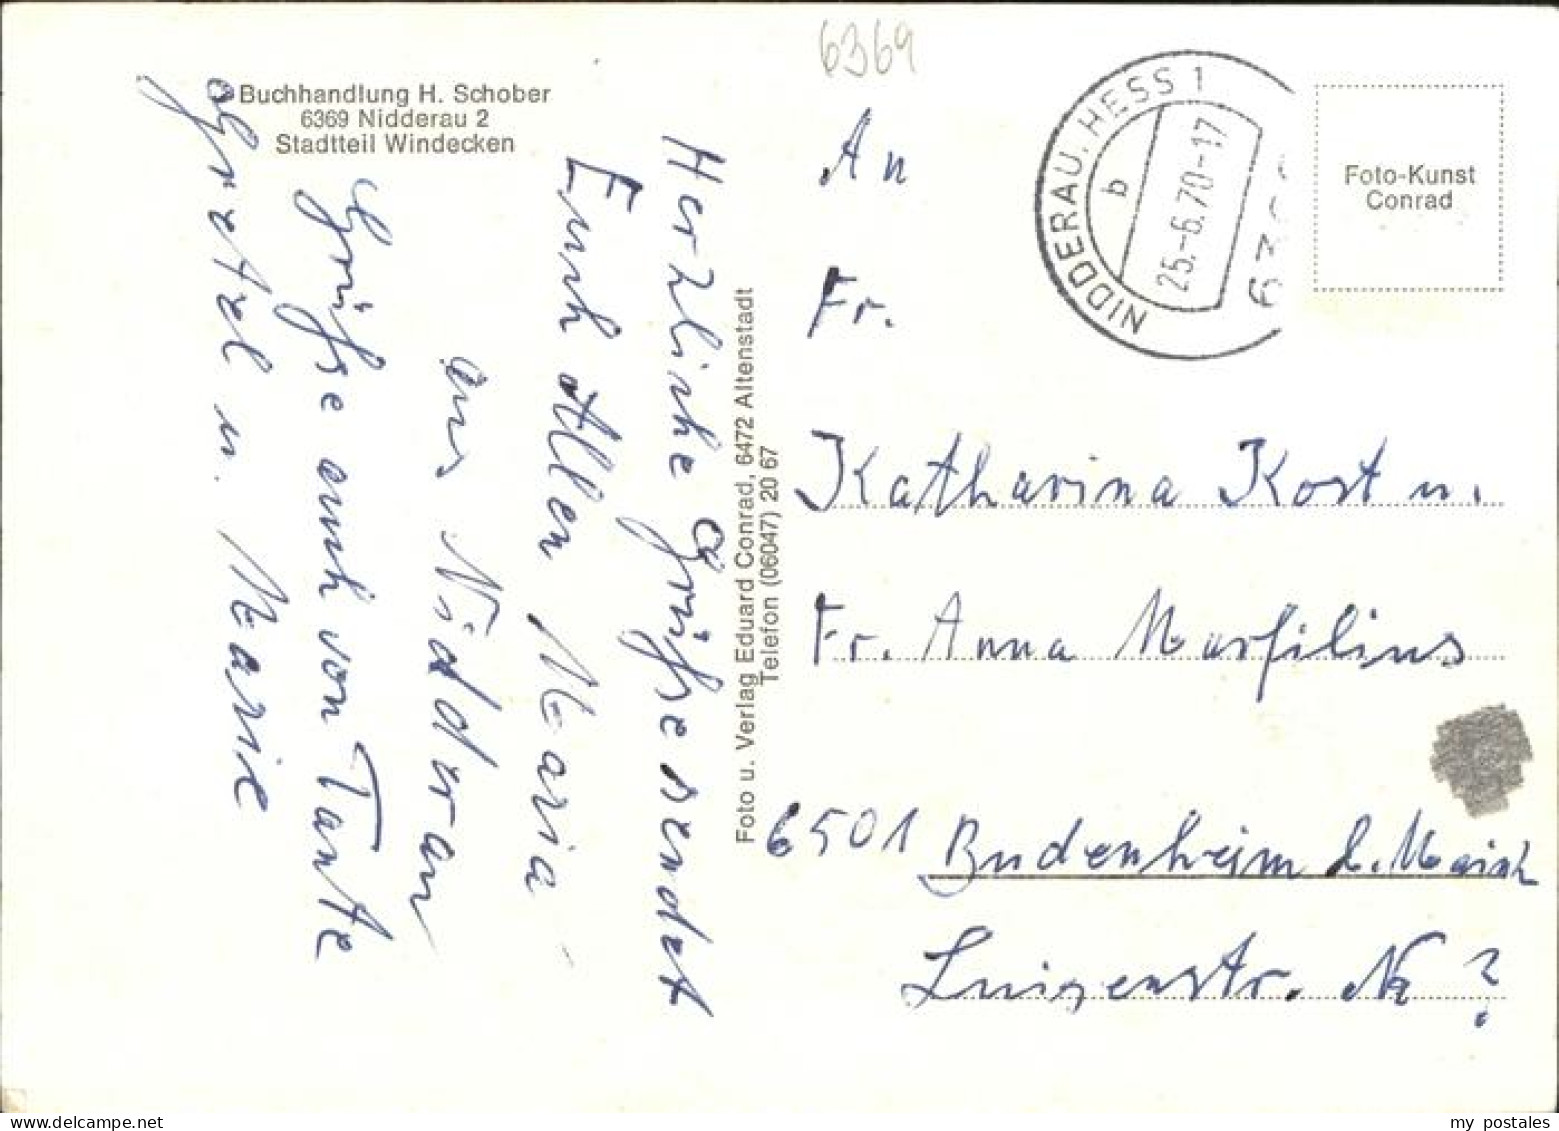 6369
Buchhandlung H. Schober
6369 Nidderau 2
Stadtteil Windecken
Herzliche Grüße sendet
Euch Allen Maria
aus Nidderau
Grüße auch von Tante
Gretel u. Marie
Foto u. Verlag Eduard Conrad, 6472 Altenstadt
Telefon (06047) 20 67
NIDDERAU, HESS 1
b
25.-6.70-17
Foto-Kunst
Conrad
An
Fr.
Katharina Kost u.
Fr. Anna Marfilius
6501 Budenheim b. Mainz
Luisenstr. Nr ?
my postales